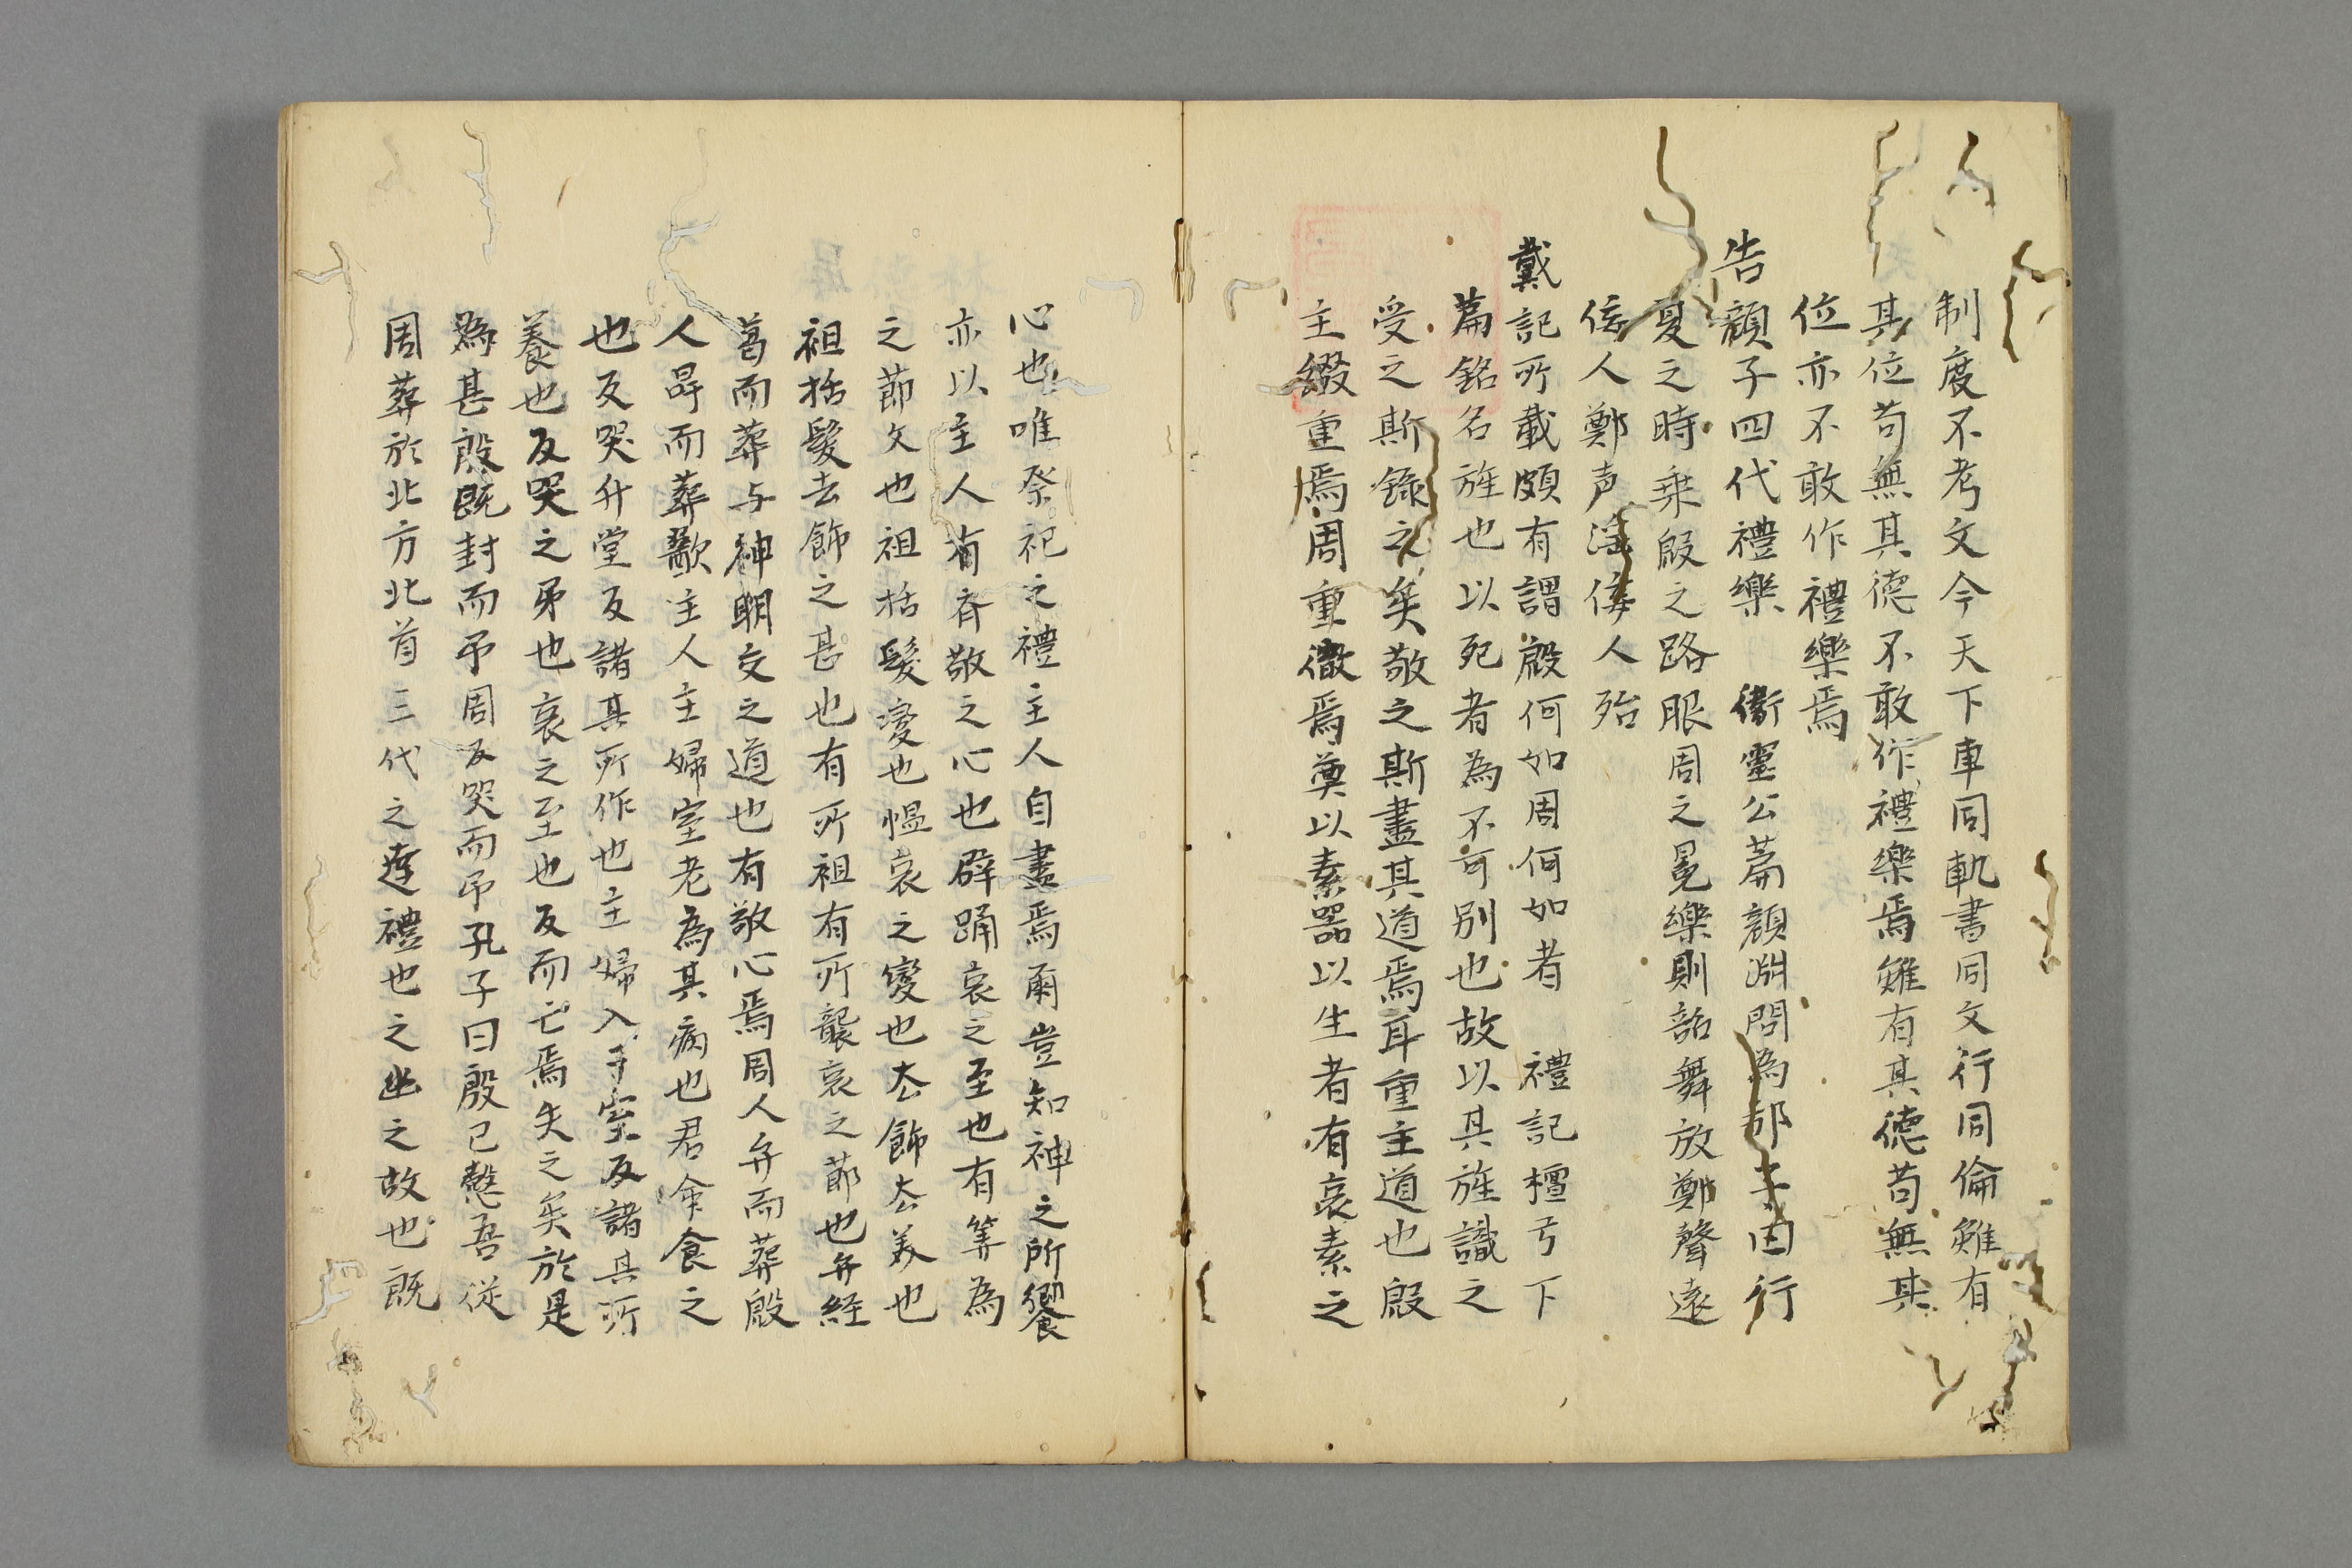 制度不考文今天下車同軌書同文行同倫雖有
其位苟無其德不敢作禮樂焉雖有其德苟無其
位亦不敢作禮樂焉
告顏子四代禮樂 衞靈公篇顏渊問為邦子曰行
夏之時乗殷之路服周之冕樂則韶舞放鄭聲遠
佞人鄭声淫佞人殆
戴記所載頗有謂殷何如周何如者 禮記檀弓下
篇銘名旌也以死者為不可别也故以其旌識之
受之斯錄之矣敬之斯盡其道焉耳重主道也殷
主綴重焉周重徹焉奠以素器以生者有哀素之
心也唯祭祀之禮主人自盡焉爾豈知神之所饗
亦以主人有斉敬之心也辟踊哀之至也有筭為
之莭文也袒括髮変也愠哀之變也去飾去美也
袒括髮去飾之甚也有所袒有所襲哀之莭也弁経
葛而葬与神明交之道也有敬心焉周人弁而葬殷
人冔而葬歠主人主婦室老為其病也君命食之
也反哭升堂反諸其所作也主婦入于室反諸其所
養也反哭之弔也哀之至也反而亡焉失之矣於是
為甚殷既封而弔周反哭而弔孔子曰殷已慤吾從
周葬於北方北首三代之達禮也之幽之故也既